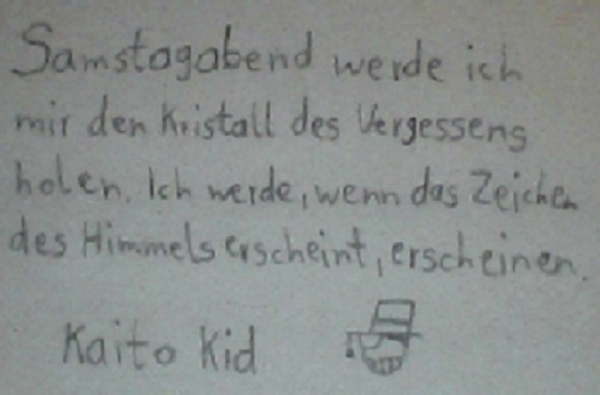 Samstagabend werde ich
mir den Kristall des Vergessens
holen. Ich werde, wenn das Zeichen
des Himmels erscheint, erscheinen.
Kaito Kid